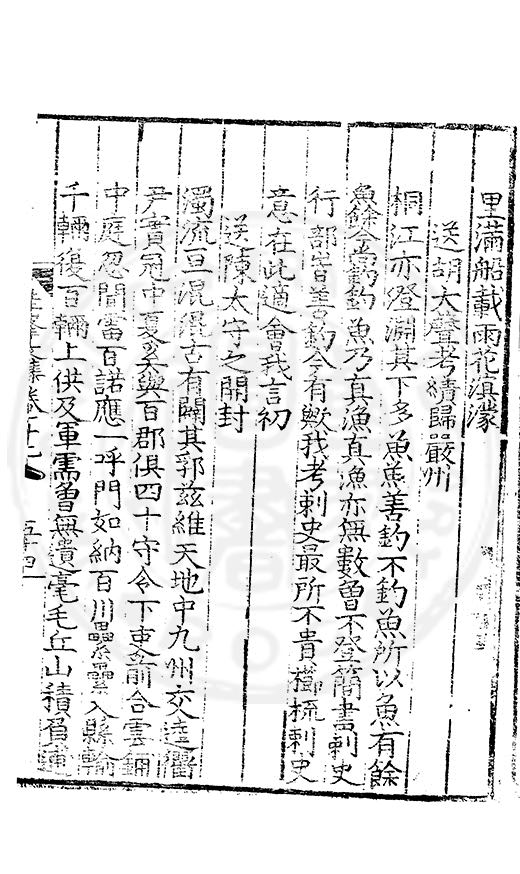 里滿船載雨花滇濛
送胡太聲考績歸嚴州
桐江亦澄淵其下多魚蕉善釣不釣魚所以魚有餘
魚餘今當釣釣魚乃真漁真漁亦無數曾不登簡書刺史
行部皆善釣今有歟我考刺史最所不貴櫛梳刺史
意在此適會我言初
送陳太守之開封
濁流亘混混古有闢其郛茲維天地中九州交逵衢
尹實冠中夏奚與百郡俱四十守令下吏前合雲鋪
中庭忽聞雷百諾應一呼門如納百川纍纍入縣輸
千輛復百輛上供及軍需曾無遺毫毛丘山積負逋
五十四